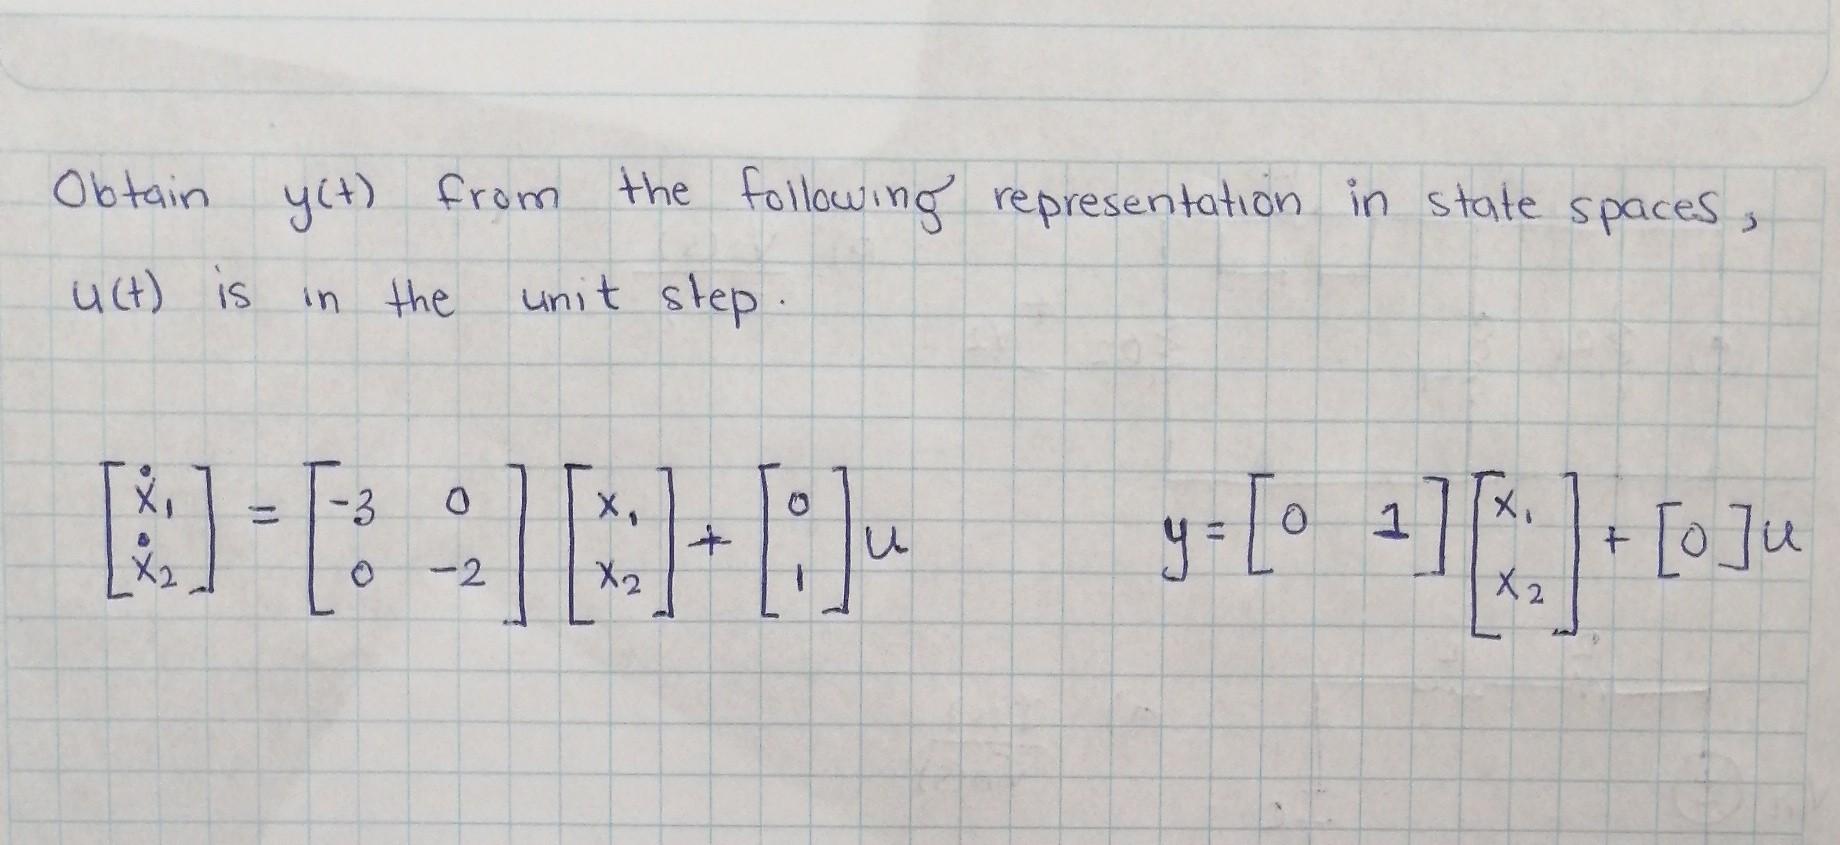 Obtain y(t) from the following representation in state spaces,
u(t) is in the unit step.
[ẋ₁; ẋ₂] = [-3 0; 0 -2] [x₁; x₂] + [0; 1] u    y = [0 1] [x₁; x₂] + [0] u